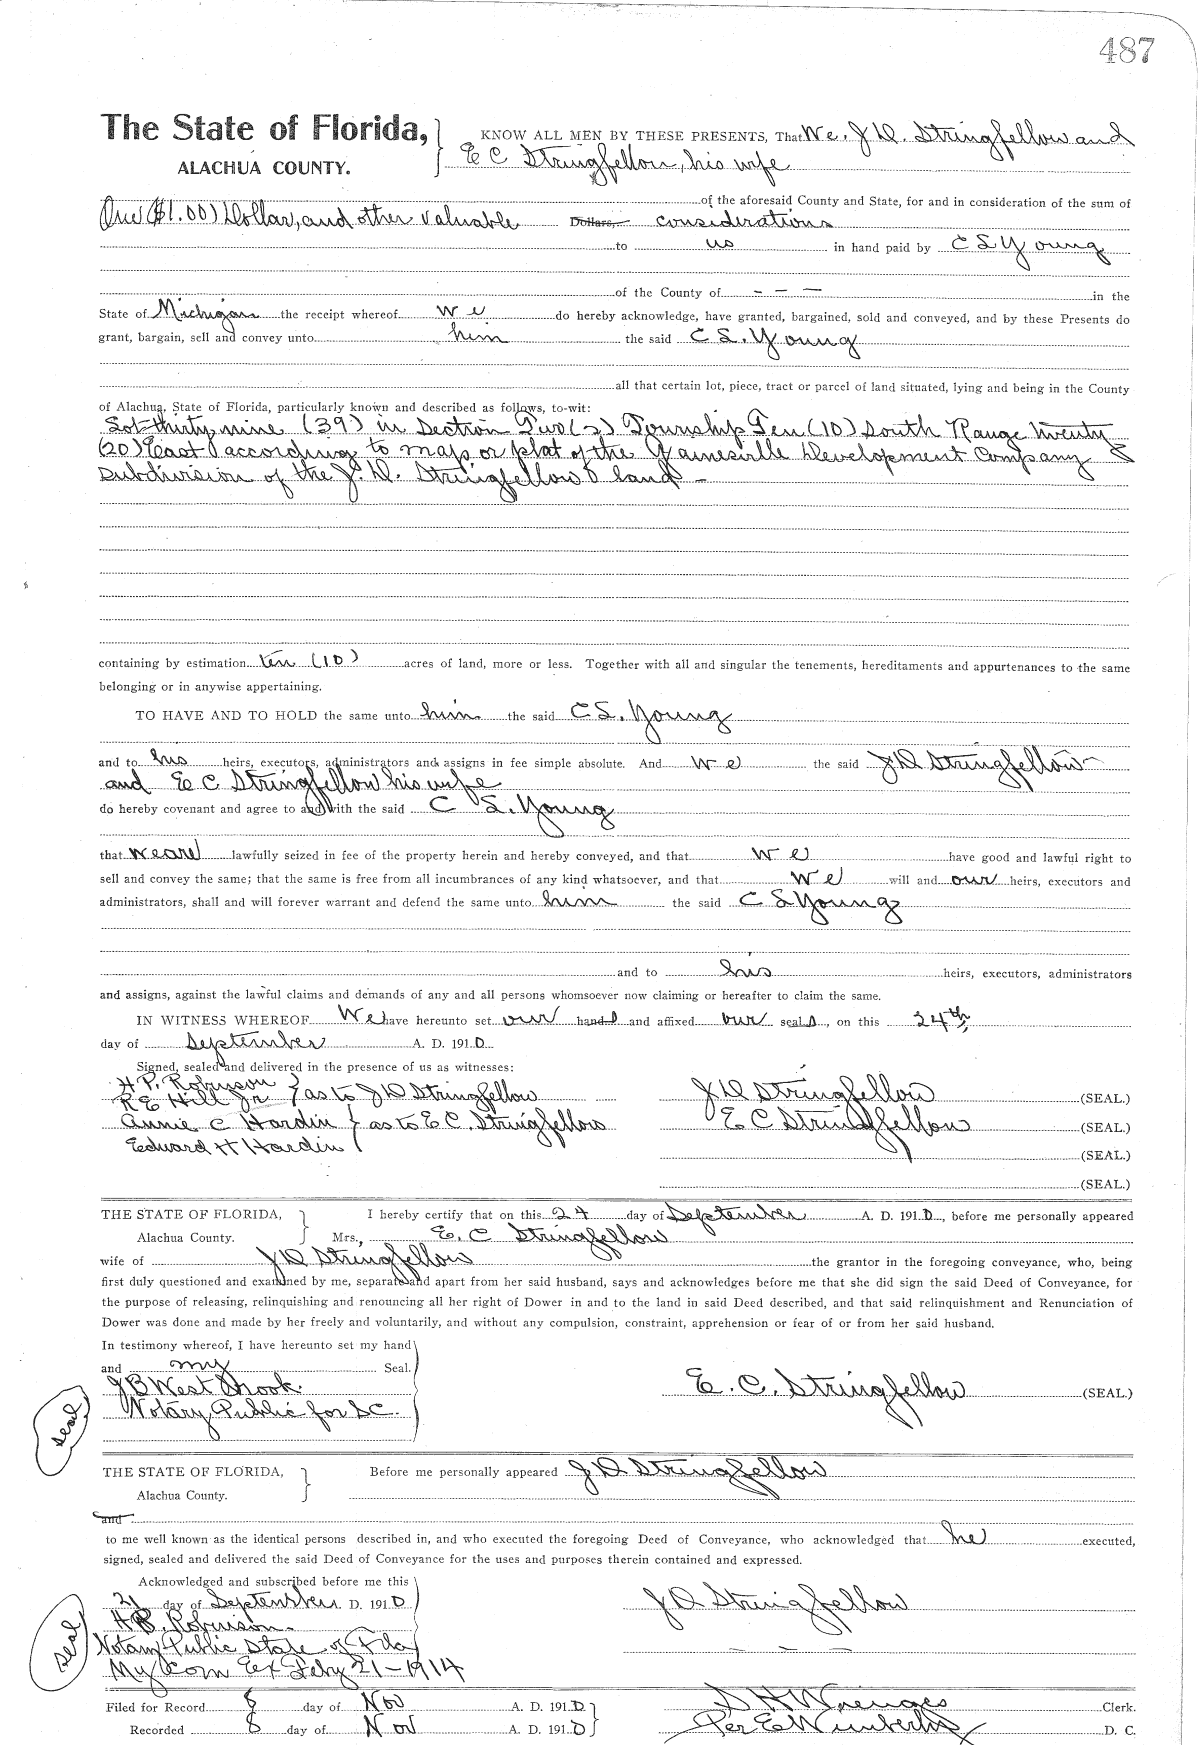 487
The State of Florida, KNOW ALL MEN BY THESE PRESENTS, That We, J D. Stringfellow and
ALACHUA COUNTY. E C Stringfellow, his wife
of the aforesaid County and State, for and in consideration of the sum of
One ($1.00) Dollar, and other valuable Dollars, considerations
to us in hand paid by C S Young
of the County of - - - in the
State of Michigan the receipt whereof we do hereby acknowledge, have granted, bargained, sold and conveyed, and by these Presents do
grant, bargain, sell and convey unto him the said C S. Young
all that certain lot, piece, tract or parcel of land situated, lying and being in the County
of Alachua, State of Florida, particularly known and described as follows, to-wit:
Lot thirty nine (39) in Section Two (2) Township Ten (10) South Range Twenty
(20) East according to map or plat of the Gainesville Development Company S
Subdivision of the J. D. Stringfellow land -
containing by estimation ten (10) acres of land, more or less. Together with all and singular the tenements, hereditaments and appurtenances to the same
belonging or in anywise appertaining.
TO HAVE AND TO HOLD the same unto him the said C S. Young
and to his heirs, executors, administrators and assigns in fee simple absolute. And we the said J D Stringfellow
and E C Stringfellow his wife
do hereby covenant and agree to and with the said C S. Young
that we are lawfully seized in fee of the property herein and hereby conveyed, and that we have good and lawful right to
sell and convey the same; that the same is free from all incumbrances of any kind whatsoever, and that we will and our heirs, executors and
administrators, shall and will forever warrant and defend the same unto him the said C S Young
and to his heirs, executors, administrators
and assigns, against the lawful claims and demands of any and all persons whomsoever now claiming or hereafter to claim the same.
IN WITNESS WHEREOF We have hereunto set our hands and affixed our seals, on this 24th
day of September A. D. 1910
Signed, sealed and delivered in the presence of us as witnesses:
H P. Robinson
R E Hill Jr } as to J D Stringfellow J D Stringfellow (SEAL.)
Annie C Hardin } as to E C. Stringfellow E C Stringfellow (SEAL.)
Edward H Hardin (SEAL.)
(SEAL.)
THE STATE OF FLORIDA, I hereby certify that on this 24 day of September A. D. 1910, before me personally appeared
Alachua County. Mrs. E. C Stringfellow
wife of J D Stringfellow the grantor in the foregoing conveyance, who, being
first duly questioned and examined by me, separate and apart from her said husband, says and acknowledges before me that she did sign the said Deed of Conveyance, for
the purpose of releasing, relinquishing and renouncing all her right of Dower in and to the land in said Deed described, and that said relinquishment and Renunciation of
Dower was done and made by her freely and voluntarily, and without any compulsion, constraint, apprehension or fear of or from her said husband.
In testimony whereof, I have hereunto set my hand
and my Seal.
J B West Brook E. C. Stringfellow (SEAL.)
Notary Public for S C.
Seal
THE STATE OF FLORIDA, Before me personally appeared J D Stringfellow
Alachua County.
and
to me well known as the identical persons described in, and who executed the foregoing Deed of Conveyance, who acknowledged that he executed,
signed, sealed and delivered the said Deed of Conveyance for the uses and purposes therein contained and expressed.
Acknowledged and subscribed before me this
21 day of September A. D. 1910 J D Stringfellow
H P. Robinson
Notary Public State of Fla
My Com Ex Feby 21-1914
Seal
Filed for Record 8 day of Nov A. D. 1910 Clerk.
Recorded 8 day of Nov A. D. 1910 Per E Wimberly D. C.